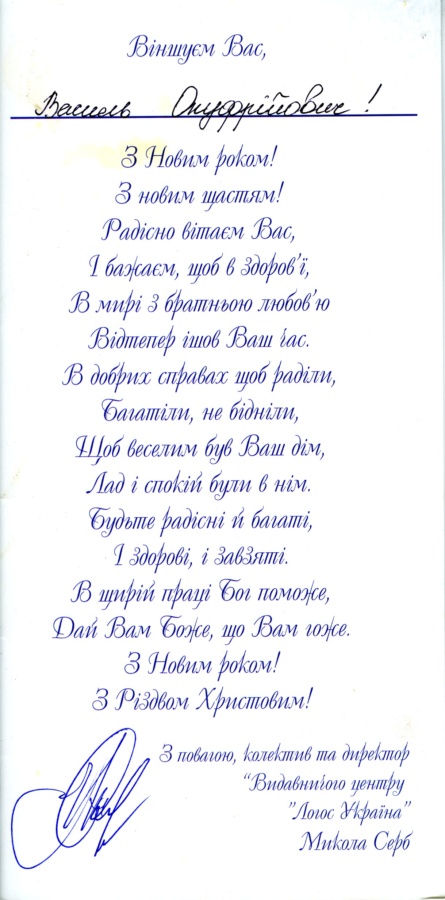 Віншуєм Вас,
Василь Онуфрійович!
З Новим роком!
З новим щастям!
Радісно вітаєм Вас,
І бажаєм, щоб в здоров'ї,
В мирі з братньою любов'ю
Відтепер ішов Ваш час.
В добрих справах щоб раділи,
Багатіли, не бідніли,
Щоб веселим був Ваш дім,
Лад і спокій були в нім.
Будьте радісні й багаті,
І здорові, і завзяті.
В щирій праці Бог поможе,
Дай Вам Боже, що Вам гоже.
З Новим роком!
З Різдвом Христовим!
З повагою, колектив та директор
“Видавничого центру
”Логос Україна”
Микола Серб